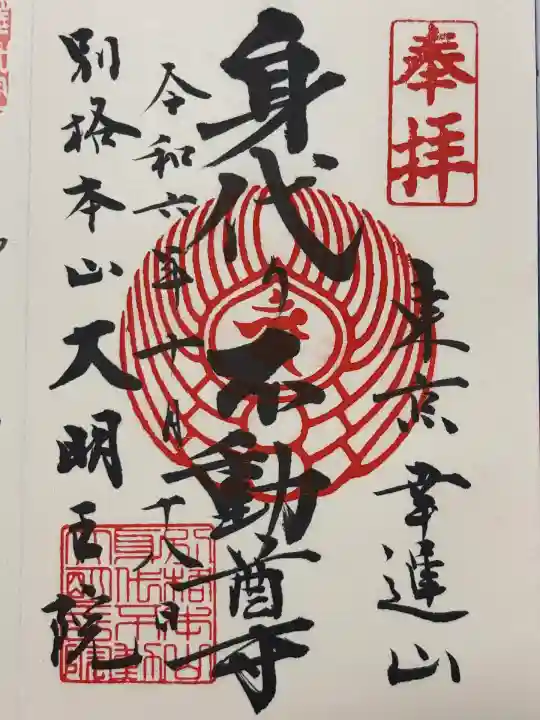 奉拝
東京 幸運山
身代り不動尊
令和六年十月十八日
別格本山大明王院